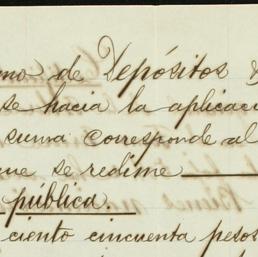 de Depósitos
se hacia la
suma corresponde al
que se redime
pública.
ciento cincuenta pesos